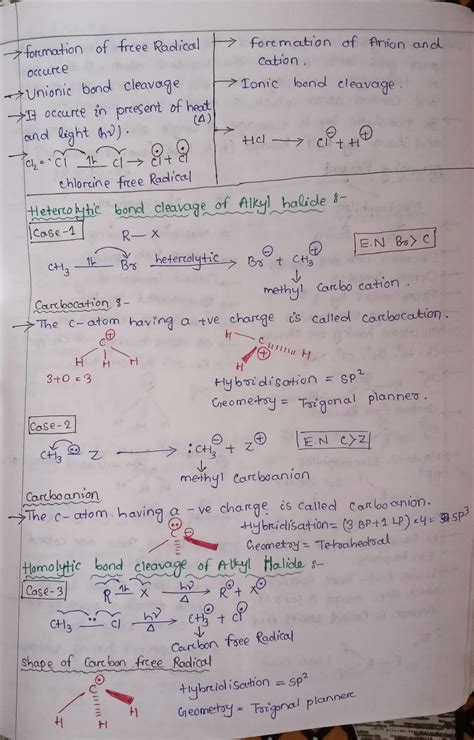 → formation of free Radical
occure
→ Unionic bond cleavage
→ It occure in present of heat (Δ)
and light (hν).
→ Cl₂ = Cl 1h Cl → Cl + Cl
chlorine free Radical
→ Formation of Anion and
cation.
→ Ionic bond cleavage.
→ HCl → Cl⊖ + H⊕
Heterolytic bond cleavage of Alkyl halide :-
Case-1 R — X
E.N Br > C
CH₃ 1h Br heterolytic → Br⊖ + CH₃⊕
↓
methyl carbo cation.
Carbocation :-
→ The C-atom having a +ve charge is called carbocation.
C⊕
H H H
3+0=3
H C⊕ H
H
Hybridisation = SP²
Geometry = Trigonal planner.
Case-2
CH₃ Z → :CH₃⊖ + Z⊕
E.N C>Z
↓
methyl carboanion
Carboanion
→ The C-atom having a -ve charge is called carboanion.
C ⊖
Hybridisation = (3 BP + 1 LP) = 4 = SP³
Geometry = Tetrahedral
Homolytic bond cleavage of Alkyl Halide :-
Case-3 R 1h X hν/Δ → R + X
CH₃ Cl hν/Δ → CH₃ + Cl
↓
Carbon free Radical
shape of Carbon free Radical
C
H H H
Hybridisation = SP²
Geometry = Trigonal planner